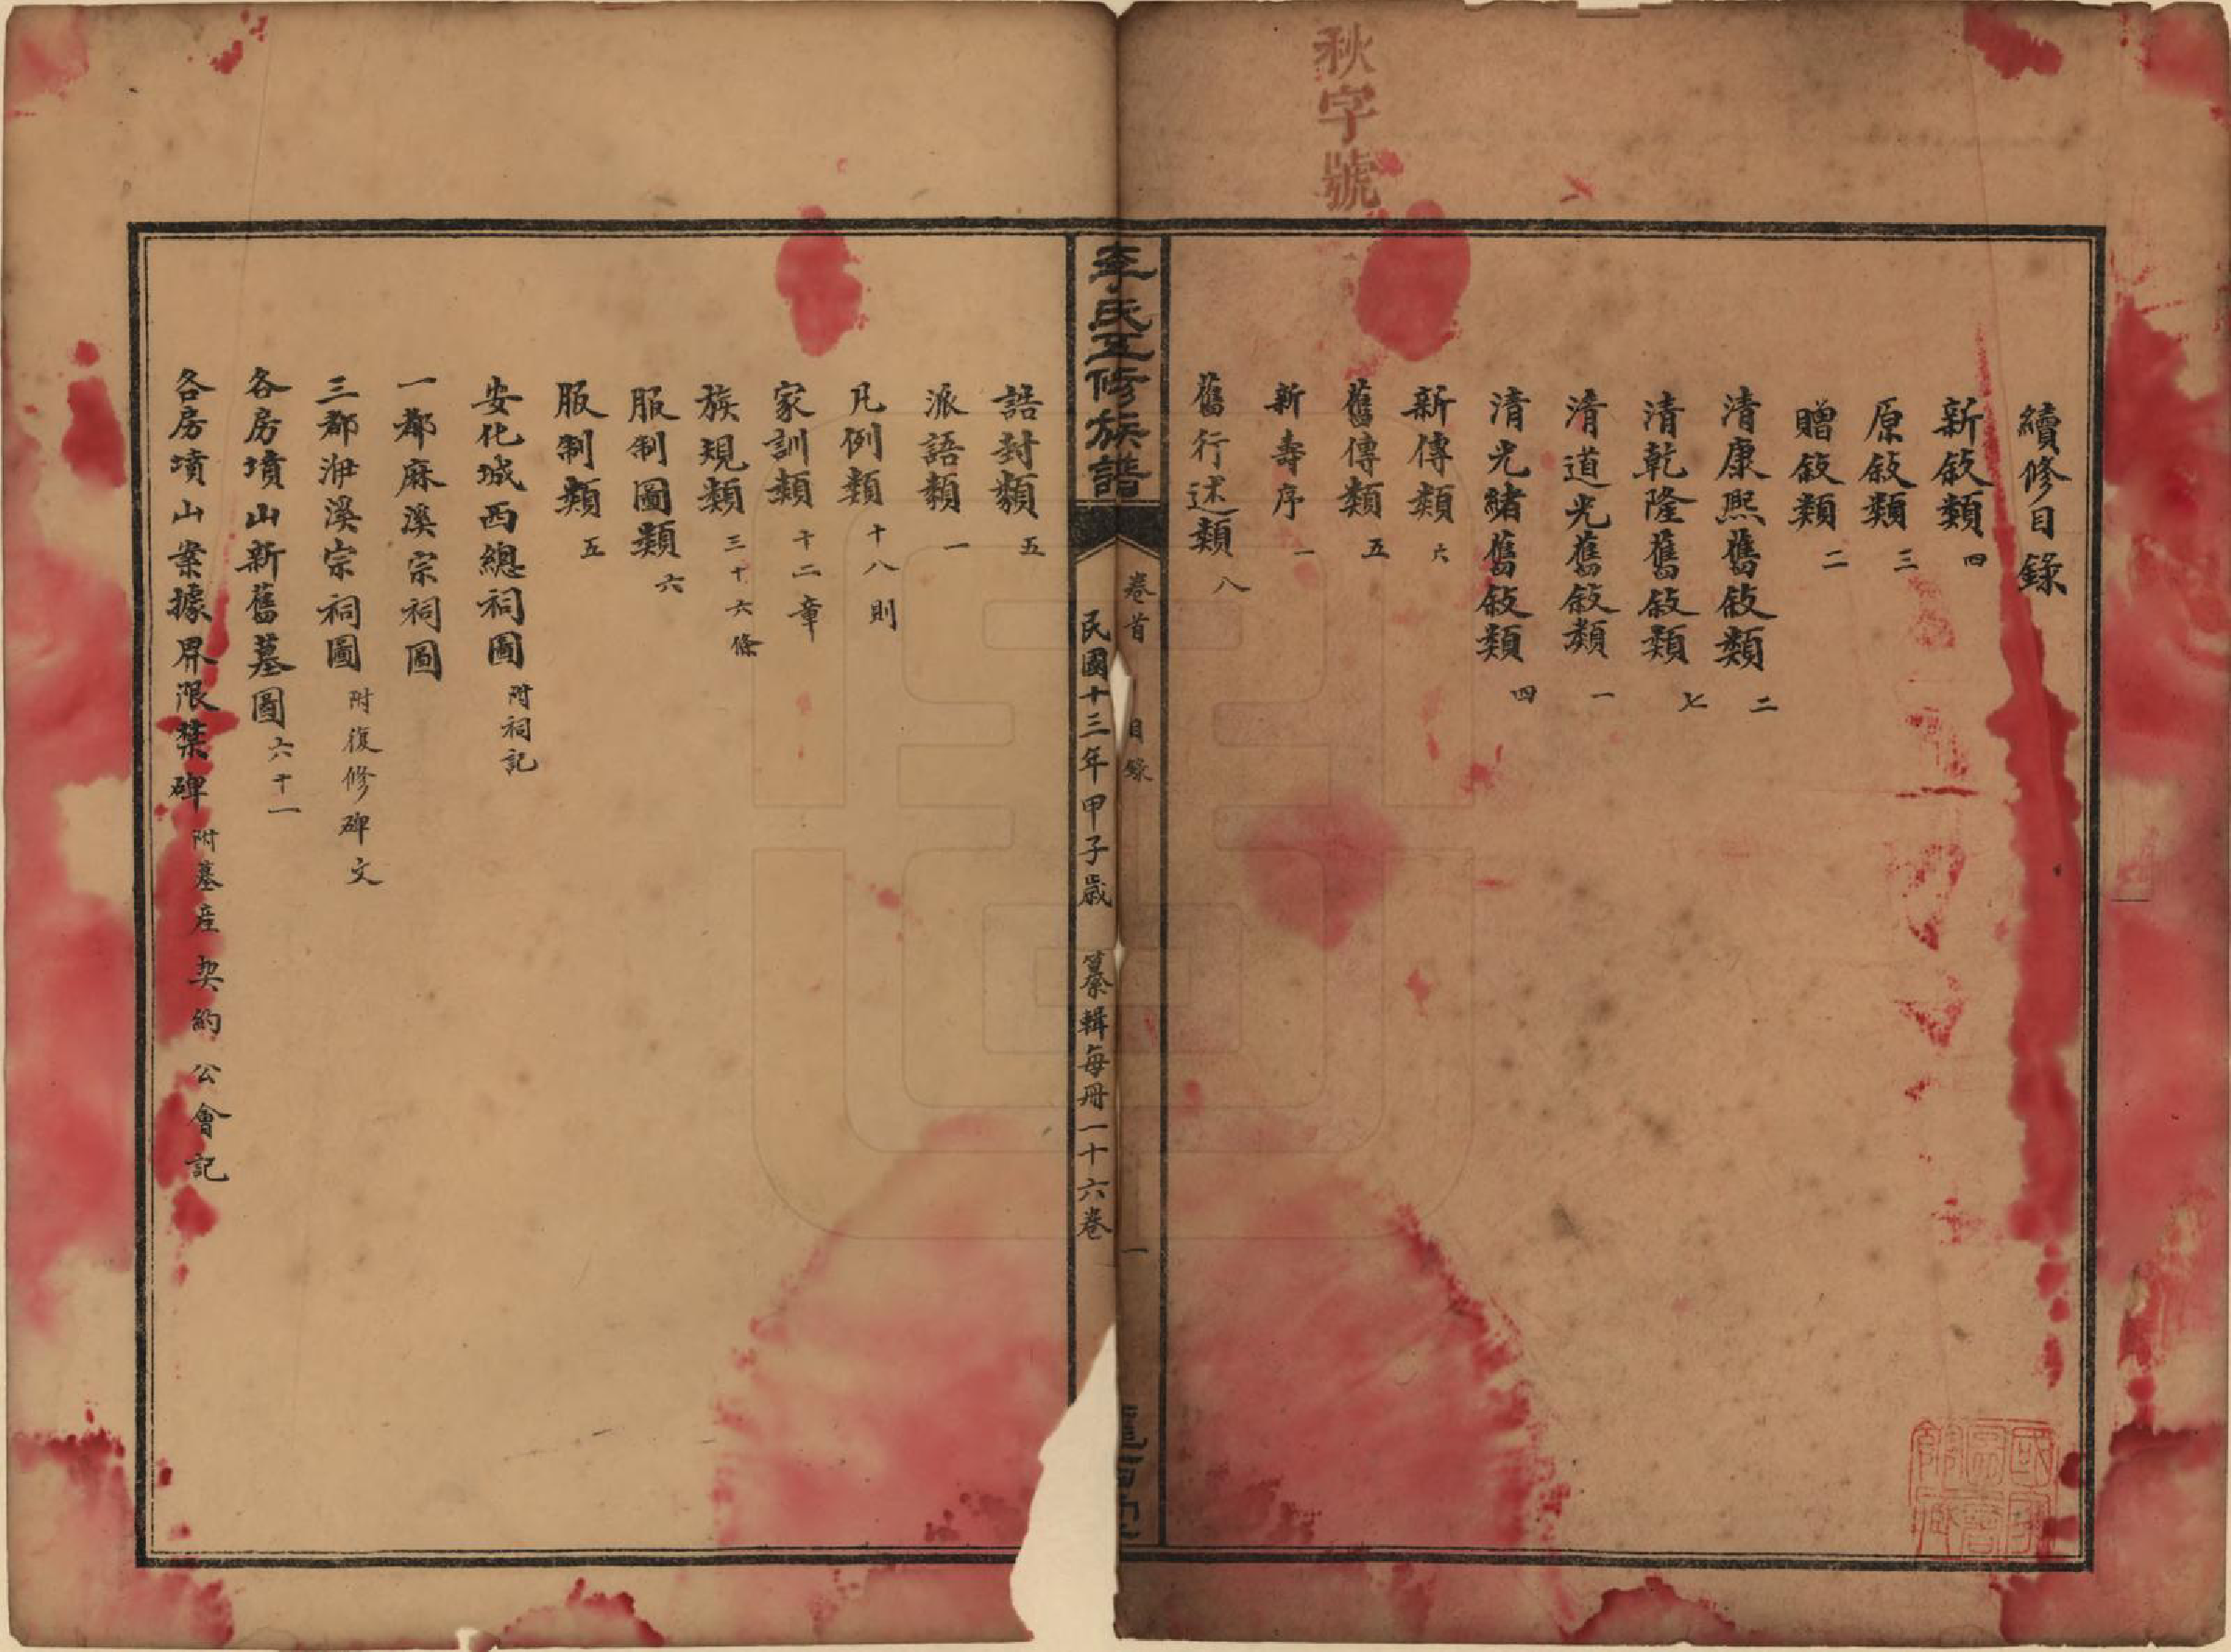 秋字號
續修目錄
新敍類 四
原敍類 三
贈敍類 二
清康熙舊敍類 二
清乾隆舊敍類 七
清道光舊敍類 一
清光緒舊敍類 四
新傳類 六
舊傳類 五
新壽序 一
舊行述類 八
李氏五修族譜
卷首 目錄 一
民國十三年甲子歲 纂輯每冊一十六卷
誥封類 五
派語類 一
凡例類 十八則
家訓類 十二章
族規類 三十六條
服制圖類 六
服制類 五
安化城西總祠圖 附祠記
一都麻溪宗祠圖
三都洢溪宗祠圖 附復修碑文
各房墳山新舊墓圖 六十一
各房墳山案據界限禁碑 附墓産契約 公會記
國家圖書館藏